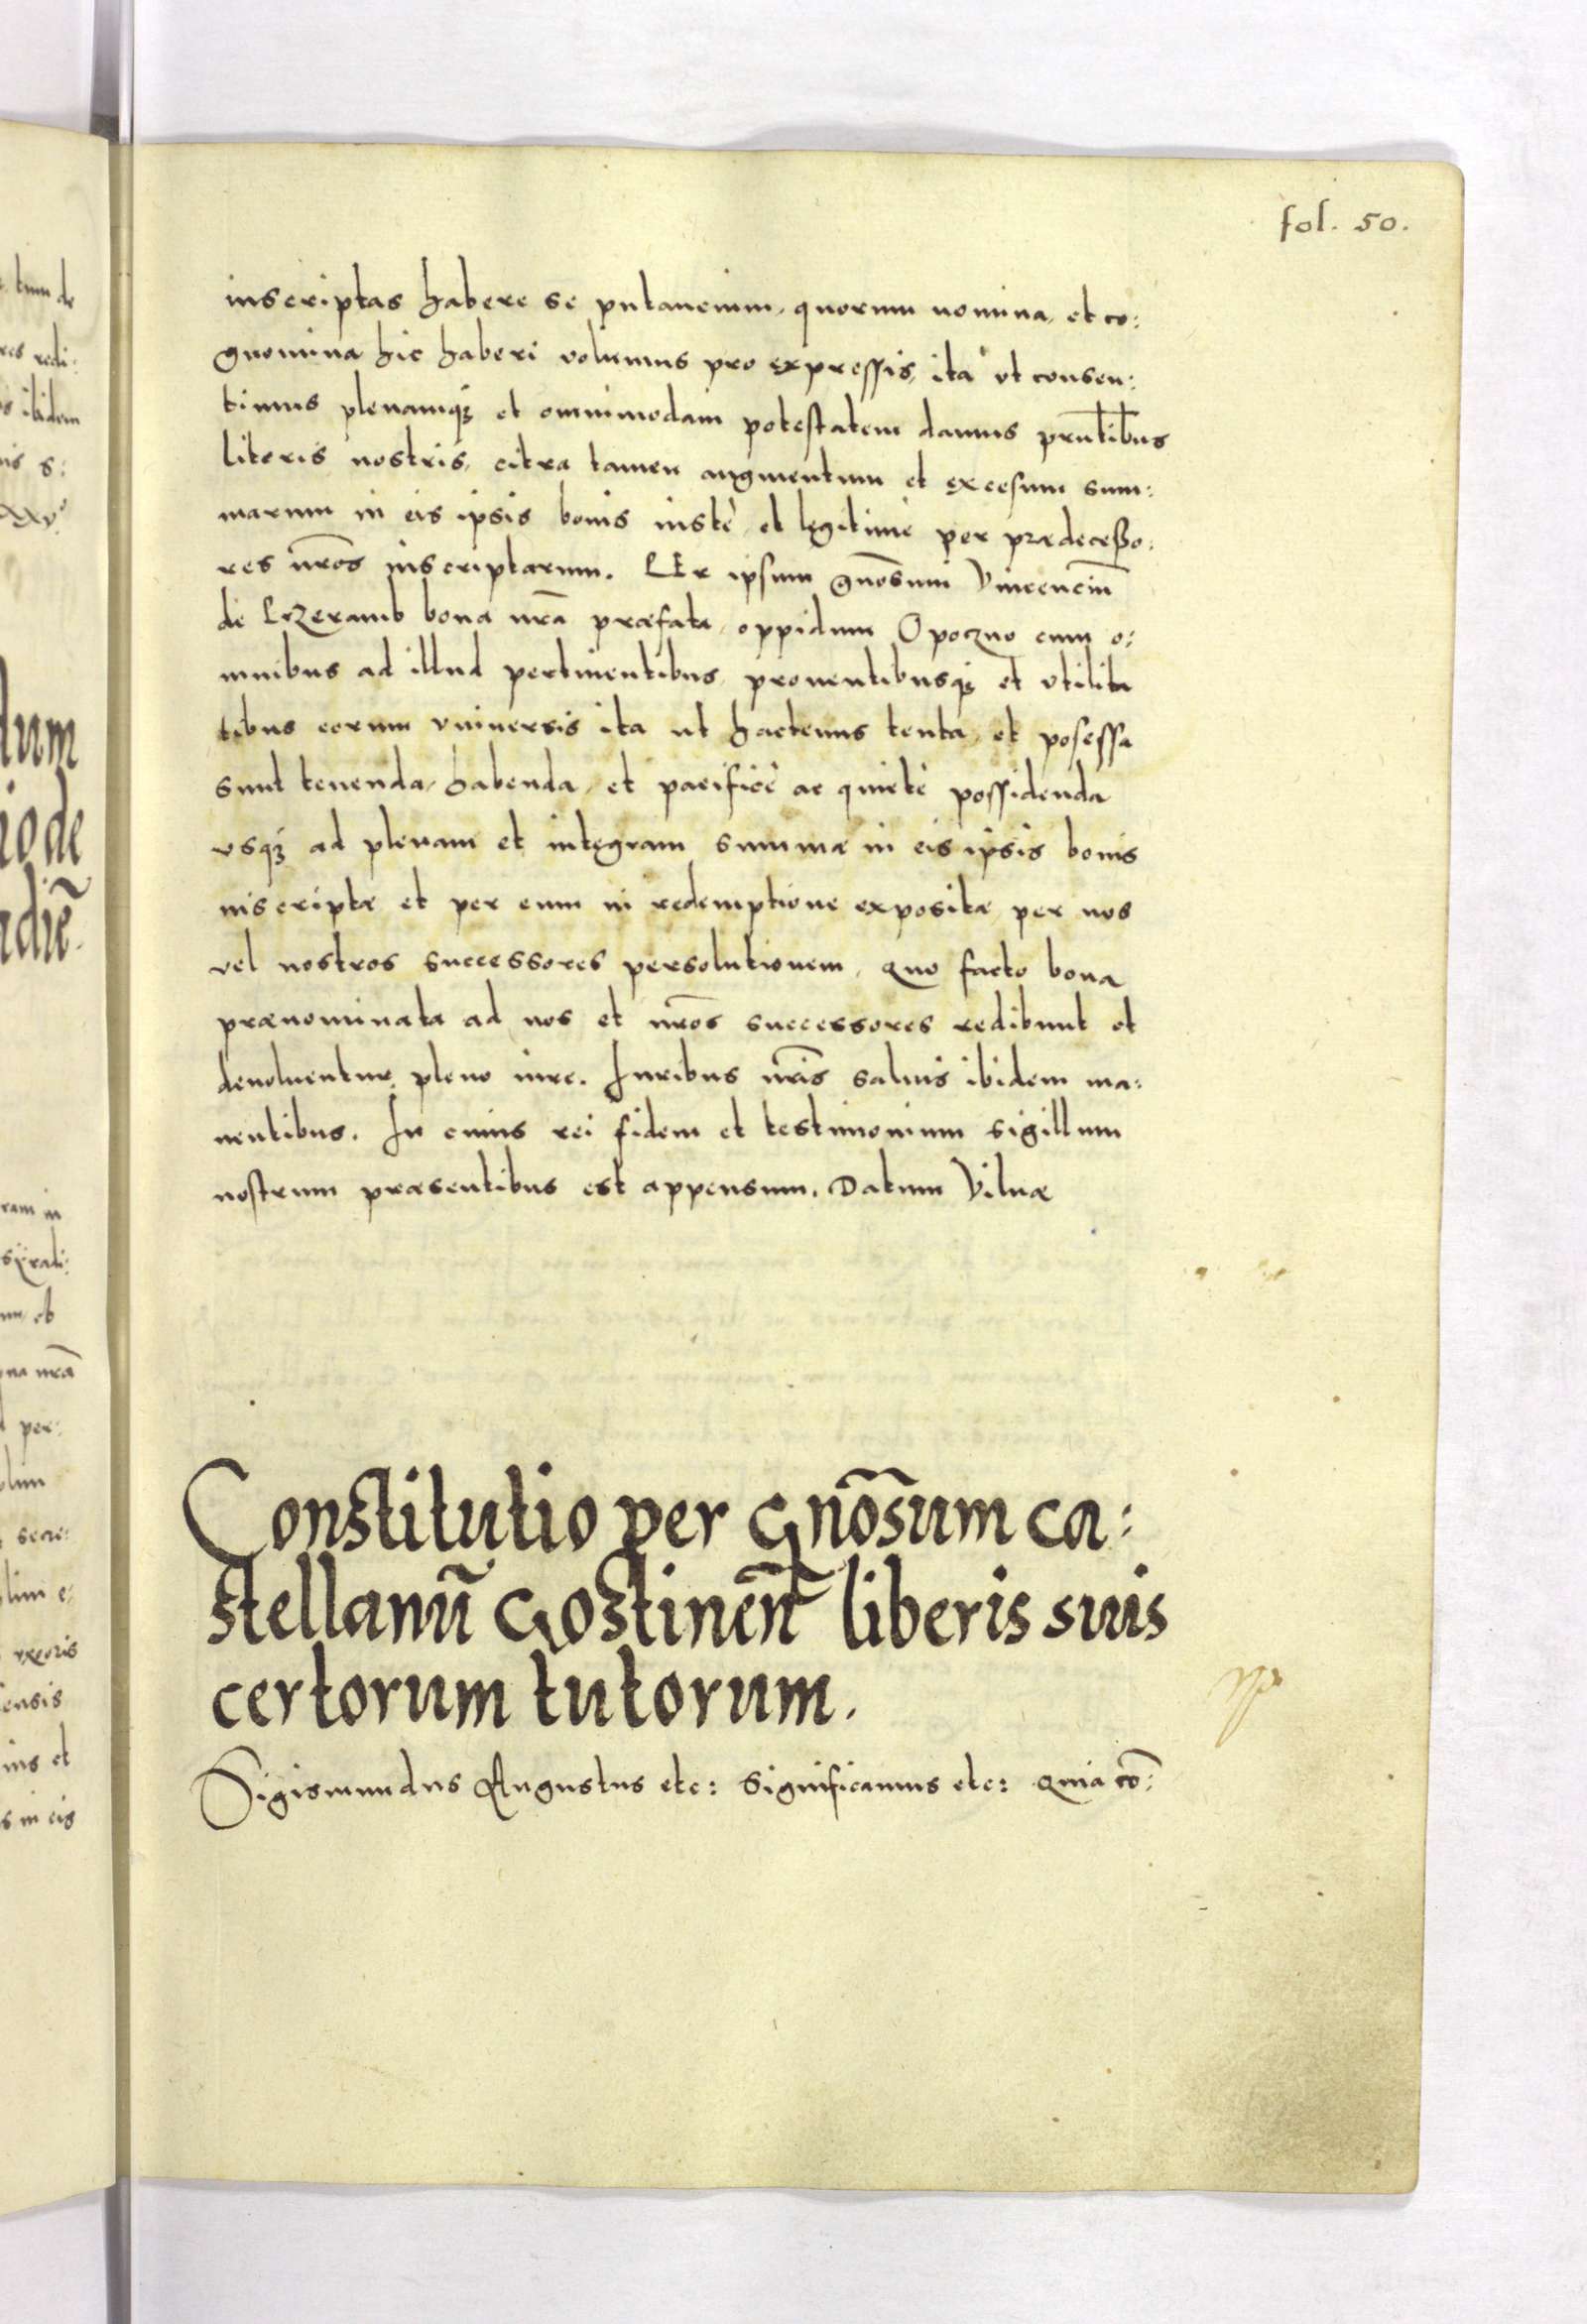 fol. 50.
inscriptas habere se putauerint, quorum nomina, et co:
gnomina hic haberi volumus pro expressis, ita vt consen:
timus plenamq3 et omnimodam potestatem damus prntibus
literis nostris, citra tamen augmentum et excesum sum:
marum in eis ipsis bonis iustè et legitimè per prædecesso:
res nros inscriptarum. Per ipsum gnosum Vincencium
de bona nra præfata, oppidum Opoczno cum o:
mnibus ad illud pertinentibus, prouentibusq3 et vtilita
tibus eorum vniuersis ita ut hactenus tenta, et posessa
sunt tenenda, habenda, et pacificè ac quietè possidenda
vsq3 ad plenam et integram summæ in eis ipsis bonis
inscriptæ et per eum in redemptione expositæ per nos
vel nostros successores persolutionem, quo facto bona
prænominata ad nos et nros successores redibunt et
deuoluentur pleno iure. Iuribus nris saluis ibidem ma:
nentibus. In cuius rei fidem et testimonium sigillum
nostrum præsentibus est appensum. Datum Vilnæ
Constitutio per Gnosum ca:
stellanũ Gostinen̄ liberis suis
certorum tutorum.
Sigismundus Augustus etc: Significamus etc: quia cō: